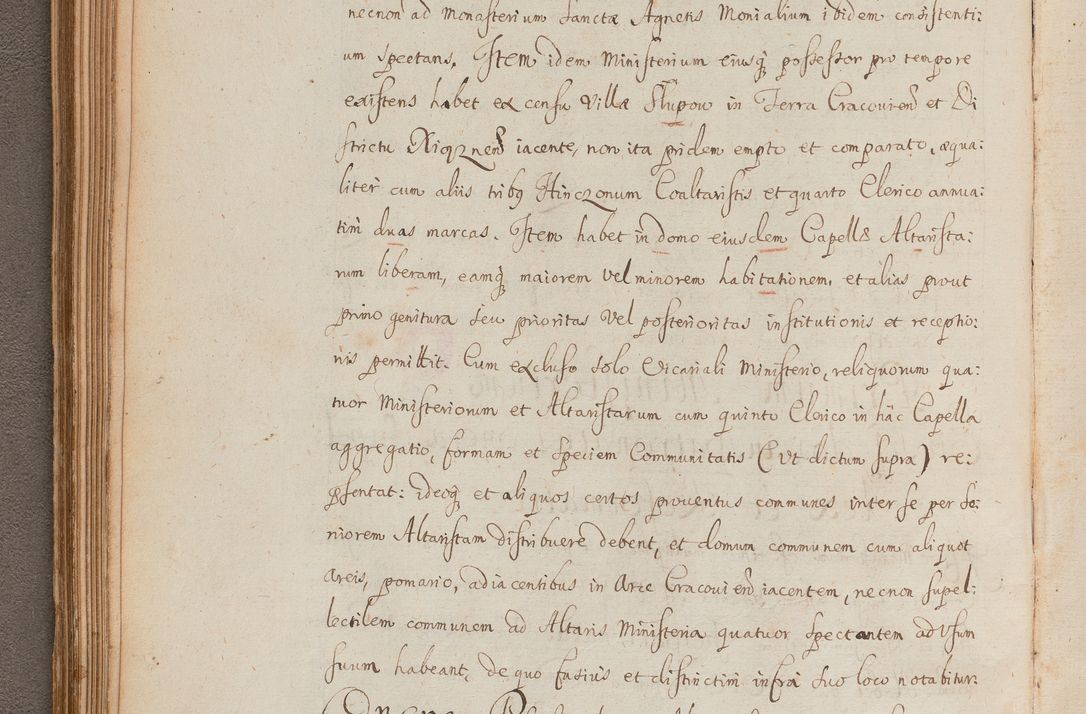 necnon ad Monasterium Sanctæ Agnetis Monialium ibidem consistenti:
um spectans. Item idem Ministerium eiusq; possessor pro tempore
existens habet ex censu Villæ Słupow in Terra Cracovien̄ et Di
strictu Xiąznen̄ iacente, non ita pridem empto et comparato, æqua:
liter cum aliis tribg Hinczonum Coaltaristis et quarto Clerico annua:
tim duas marcas. Item habet in domo eiusdem Capellæ Altarista:
rum liberam, eamq; maiorem vel minorem habitationem, et alias prout
primo genitura seu prioritas vel posterioritas institutionis et receptio:
nis permittit. Cum excluso solo Vicariali Ministerio, reliquorum qua:
tuor Ministeriorum et Altaristarum cum quinto Clerico in hâc Capella
aggregatio, formam et speciem Communitatis (vt dictum supra) re:
psentat: ideoq; et aliquos certos proventus communes inter se per Se:
niorem Altaristam distribuere debent, et domum communem cum aliquot
areis, pomario, adiacentibus in Arce Cracovien̄ iacentem, necnon supel:
lectilem communem ad Altaris Ministeria quatuor spectantem ad Vsum
suum habeant, de quo fusiùs et distinctim infrà suo loco notabitur.